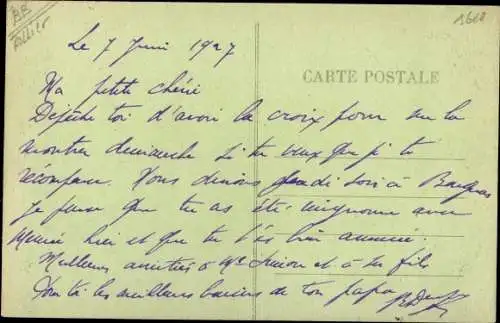 BB
Allier
1618
Le 7 Juin 1927
CARTE POSTALE
Ma petite chérie
Dépêche toi d'avoir la croix pour me la
montrer dimanche si tu veux que je te
récompense. Nous dînions jeudi soir à
je pense que tu as été mignonne avec
Mémé hier et que tu t'es bien amusée.
Meilleures amitiés à Me et à ses fils
Pour toi les meilleurs baisers de ton papa